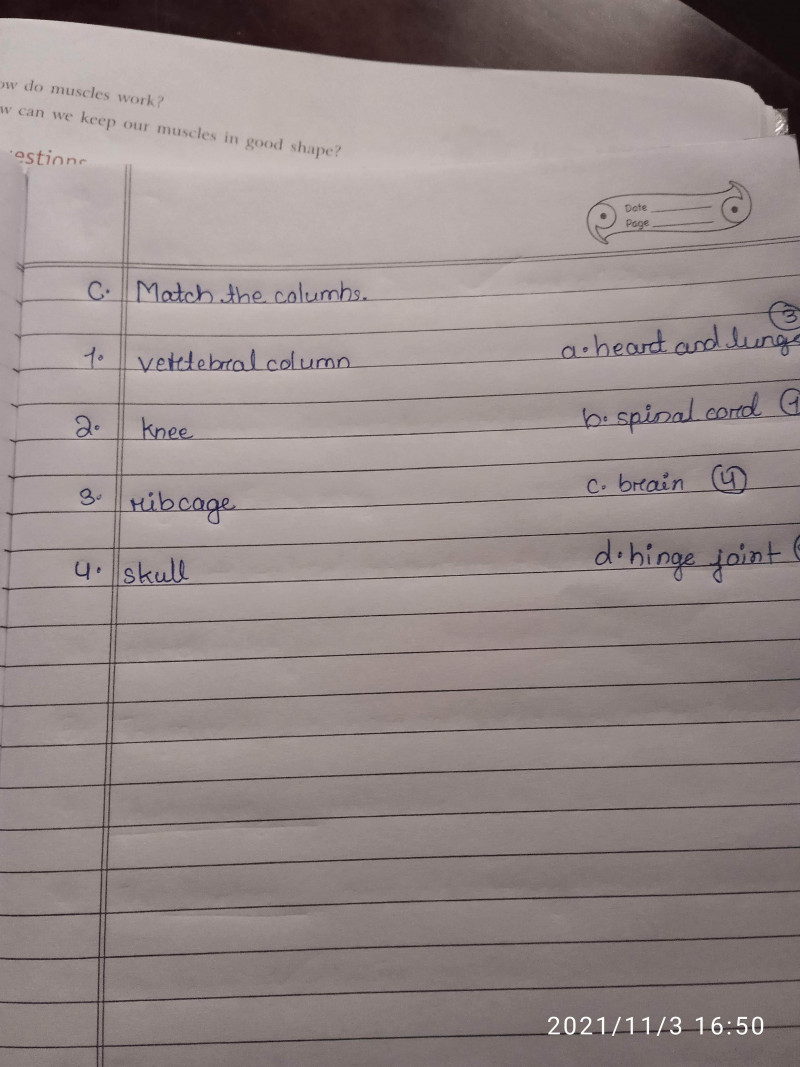 ow do muscles work?
w can we keep our muscles in good shape?
estions
Date
Page
C. Match the columns.
3
1. vertebral column a. heart and lungs
2. knee b. spinal cord 1
3. ribcage c. brain 4
4. skull d. hinge joint
2021/11/3 16:50